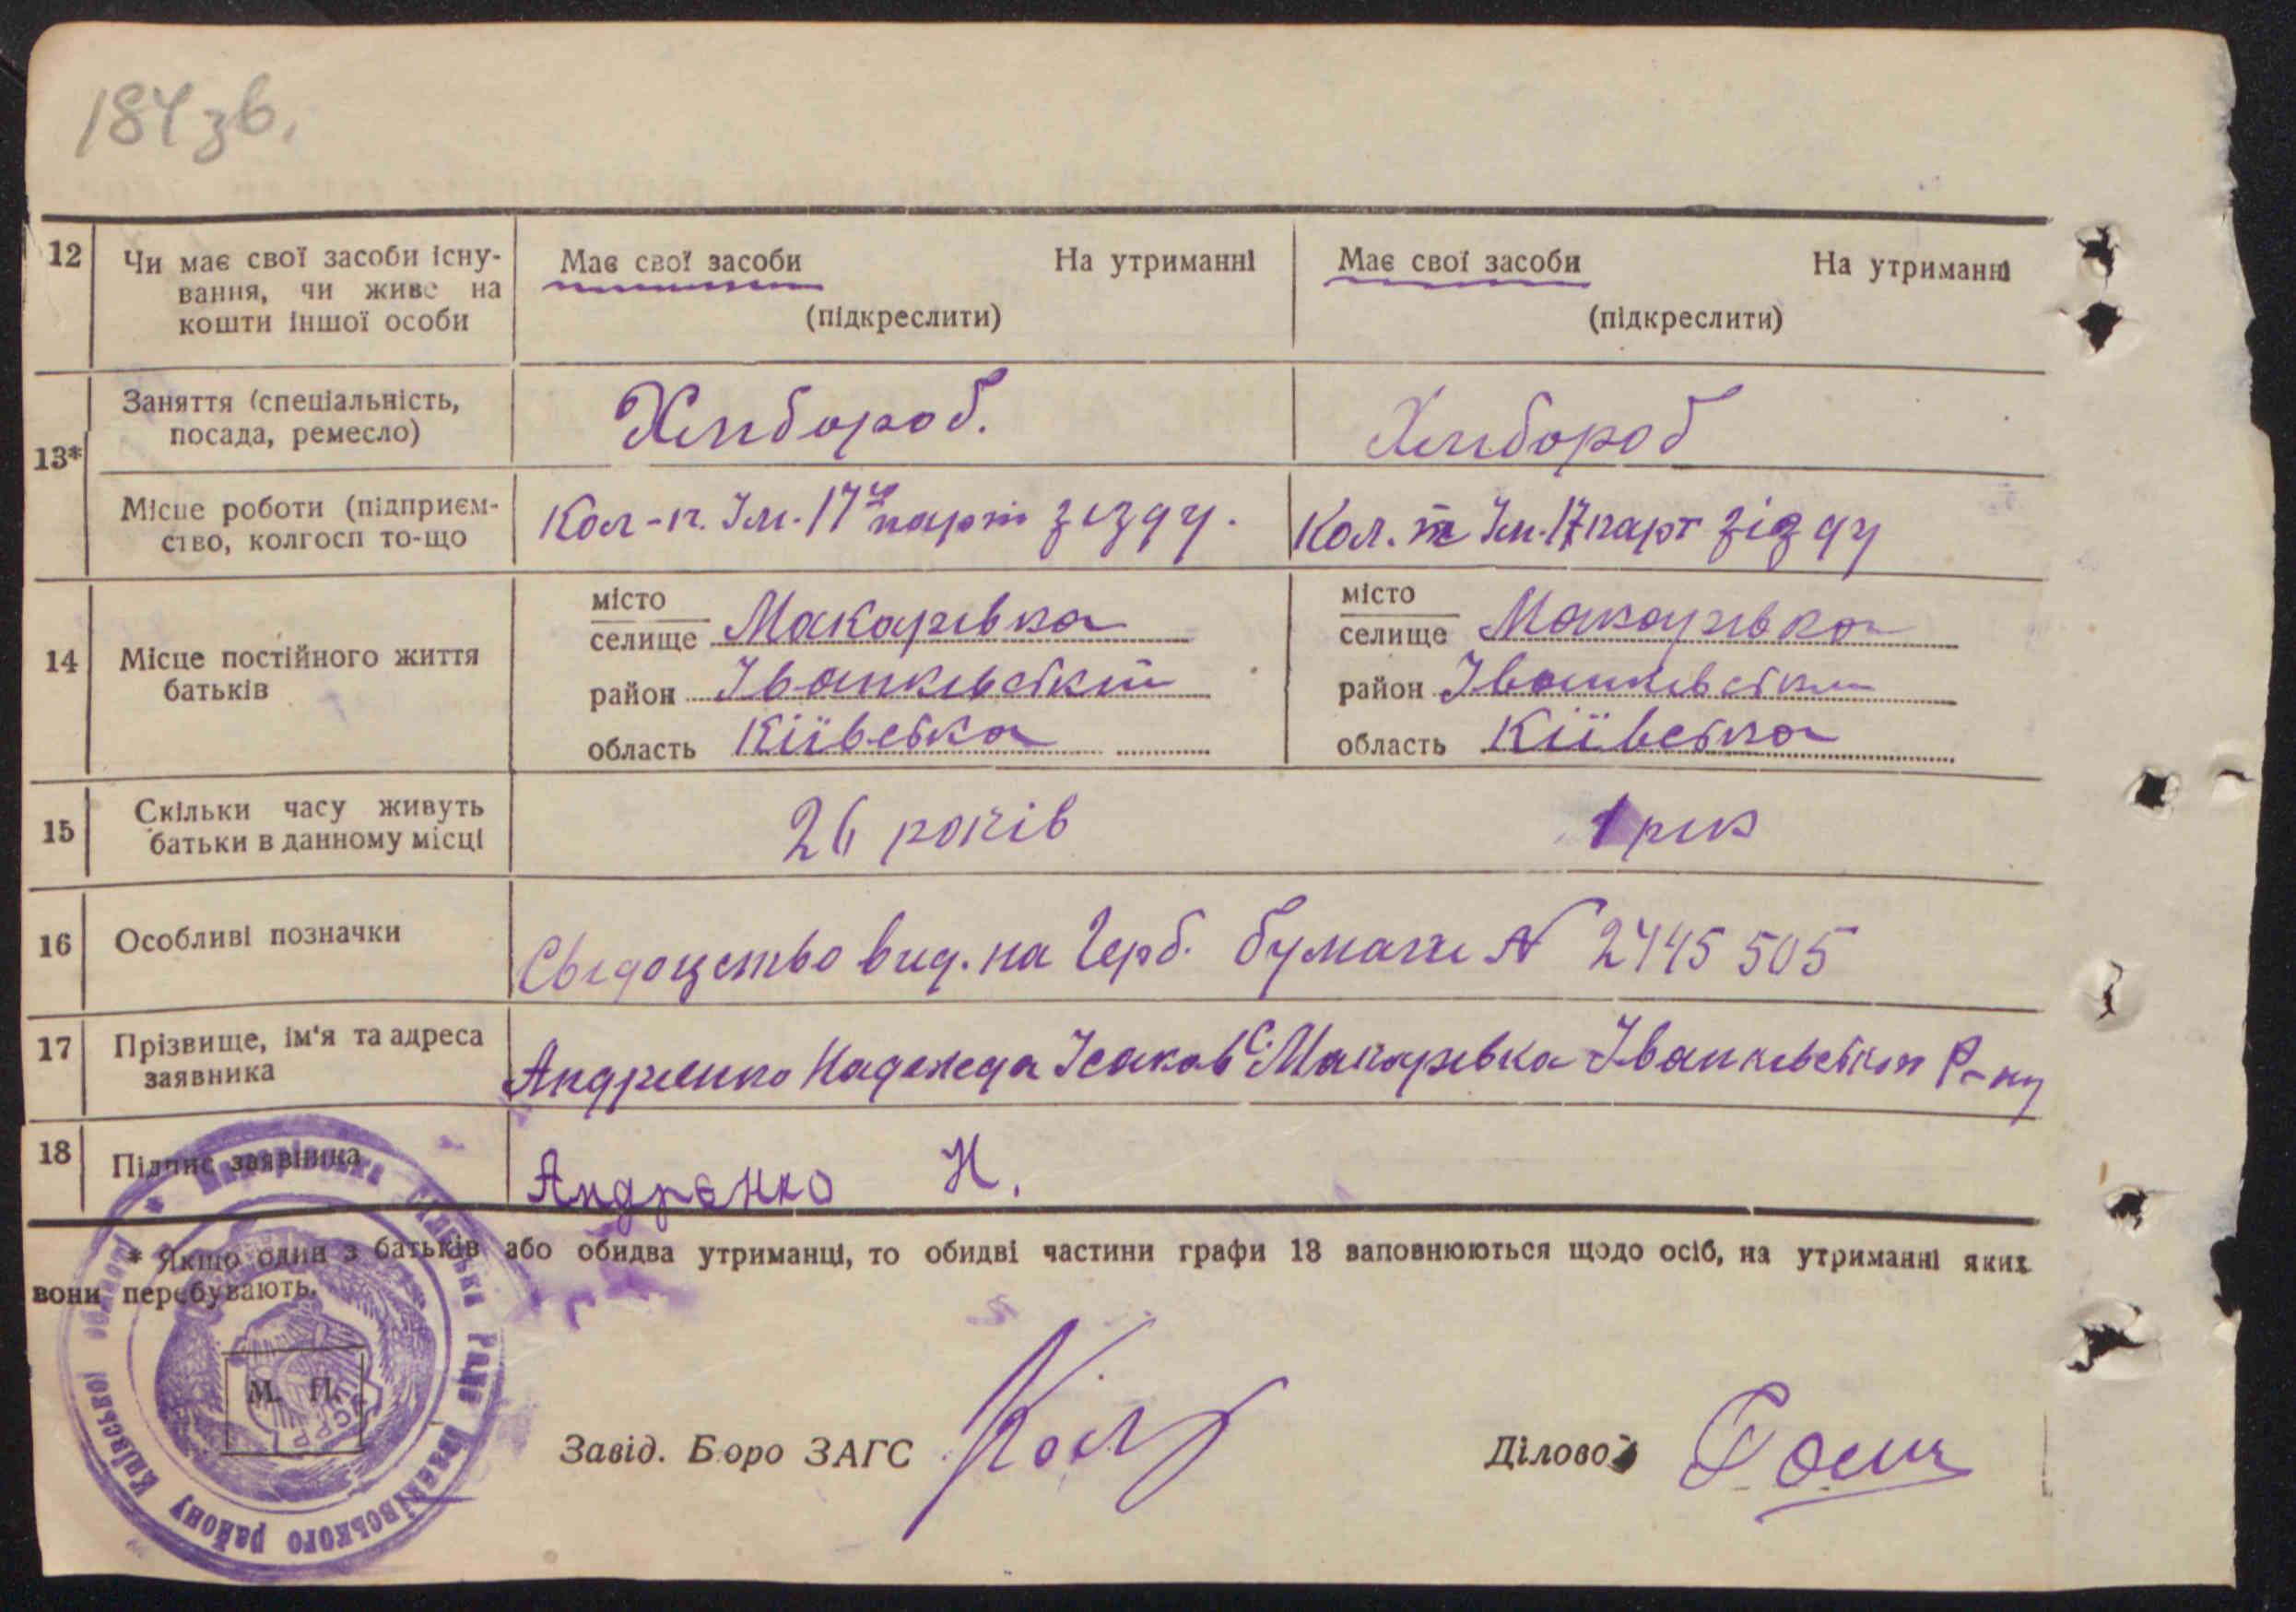 184 зв.
12 Чи має свої засоби існу-
вання, чи живе на
кошти іншої особи
Має свої засоби На утриманні
(підкреслити)
Має свої засоби На утриманні
(підкреслити)
13*
Заняття (спеціальність,
посада, ремесло)
Хлибороб.
Хлибороб
Місце роботи (підприєм-
ство, колгосп то-що
Кол-п. Ім. 17 парт зізду.
Кол. Ім. 17 парт зізду
14 Місце постійного життя
батьків
місто
селище Макарівка
район Іванківський
область Кіівська
місто
селище Макарівка
район Іванківський
область Кіівська
15 Скільки часу живуть
батьки в данному місці
26 років
1 рік
16 Особливі позначки
Свідоцтво вид. на Герб. бумагі № 2445505
17 Прізвище, ім'я та адреса
заявника
Андриенко Надежда Ісаков С. Макарівка Іванківський Р-ну
18 Підпис заявника
Андрєнко Н.
* Якщо один з батьків або обидва утриманці, то обидві частини графи 13 заповнюються щодо осіб, на утриманні яких
вони перебувають.
Макарівська сільська Рада Іванківського району Київської області
УСРР
М. П.
Завід. Бюро ЗАГС
Діловод